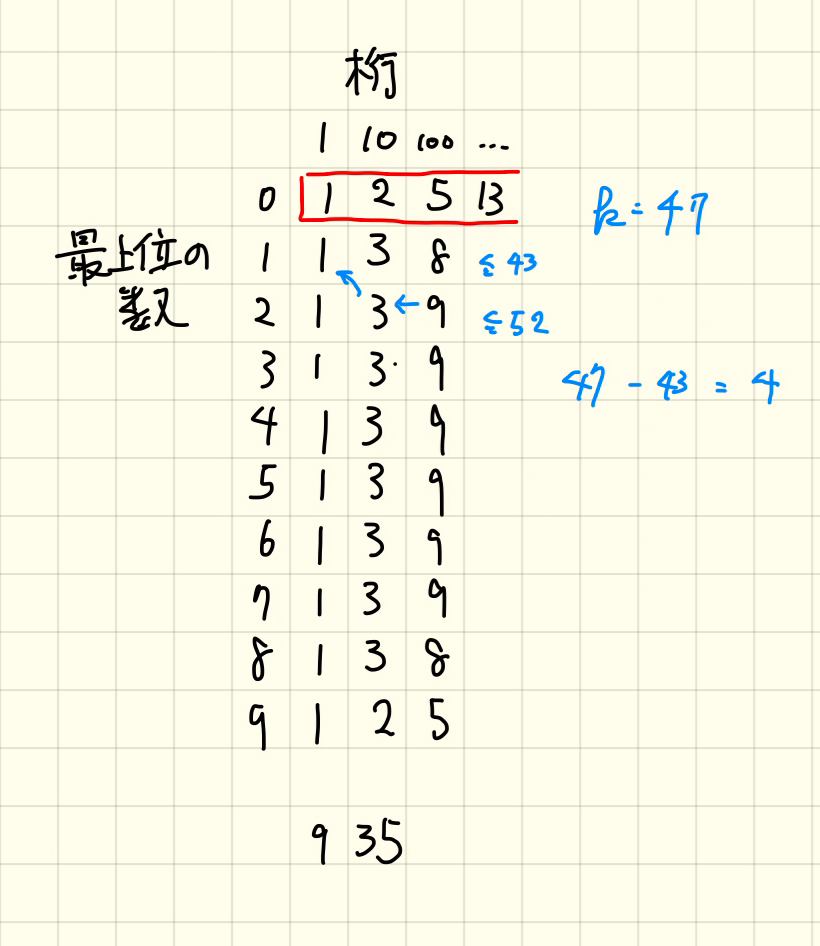 桁
1 10 100 ...
0 1 2 5 13 k=47
最上位の 1 1 3 8 ≤43
数 2 1 3 ← 9 ≤52
3 1 3 9 47 - 43 = 4
4 1 3 9
5 1 3 9
6 1 3 9
7 1 3 9
8 1 3 8
9 1 2 5
9 35